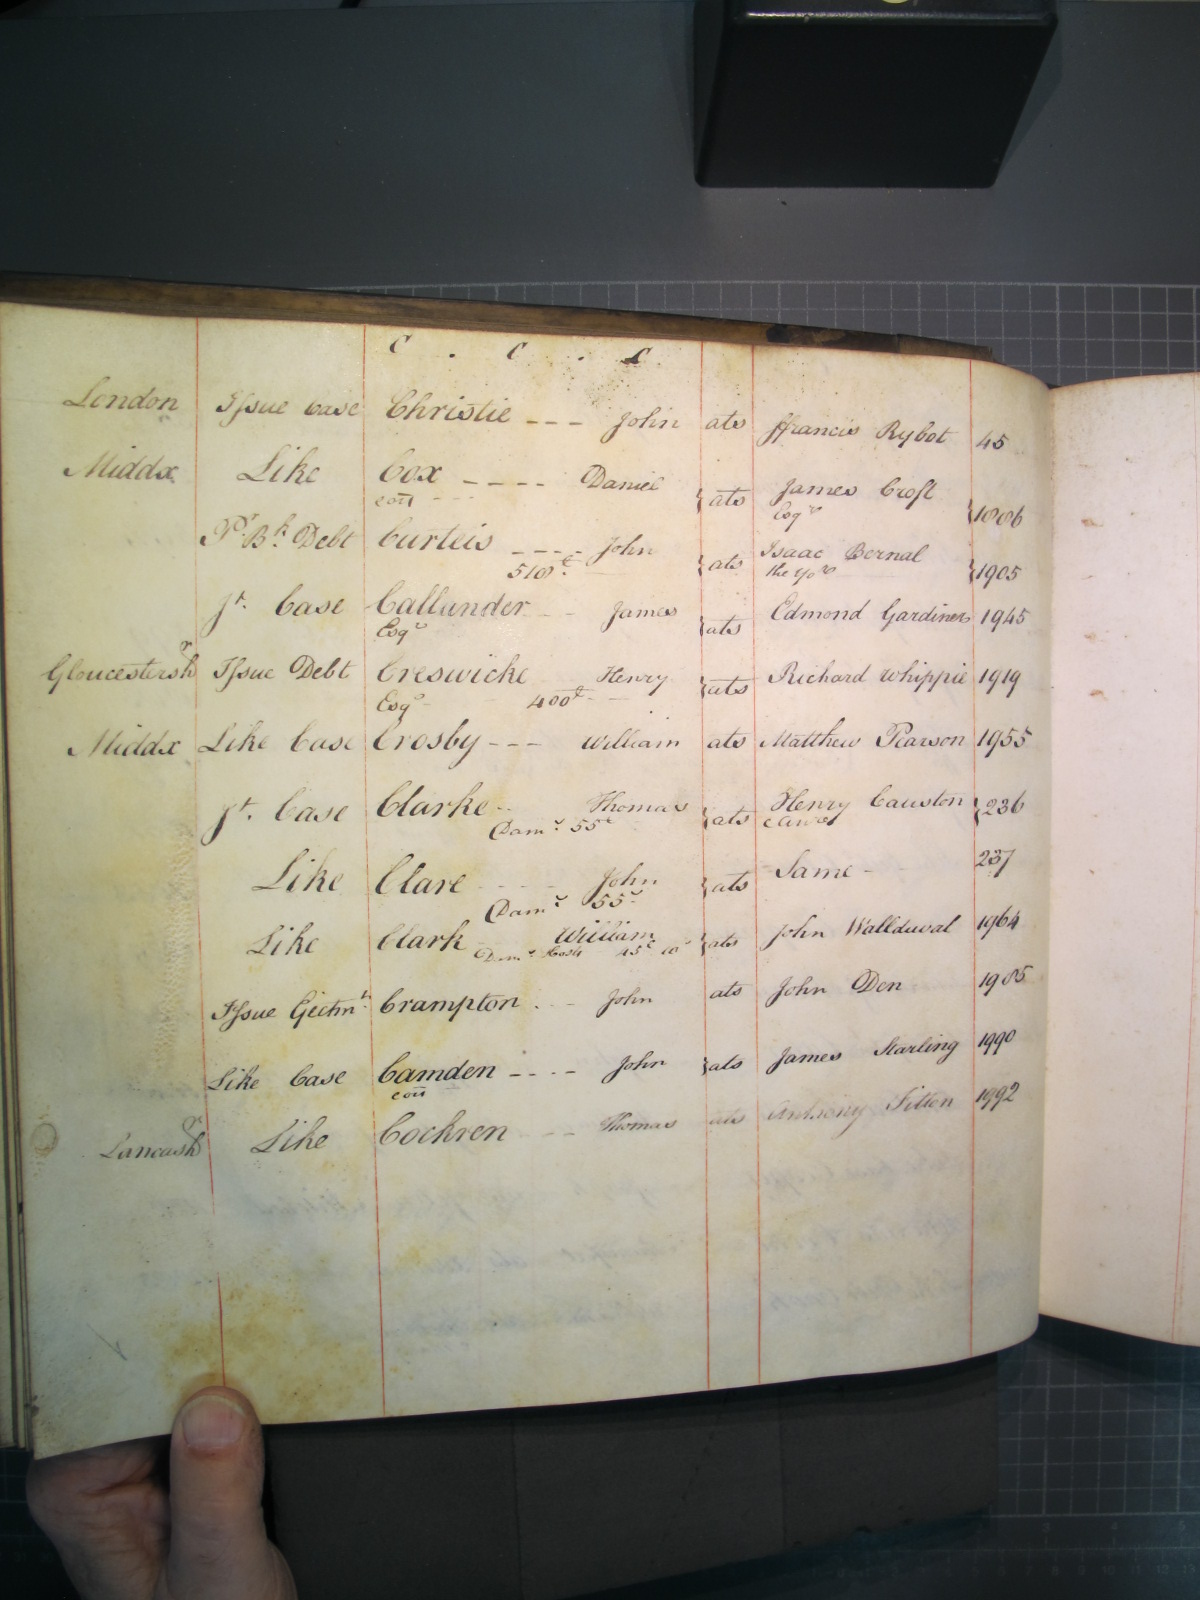 C . C . C
London Issue Case Christie --- John ats ffrancis Rybot 45
Middx Like Cox ---- Daniel ats James Croft 1886
Esqr
Pr. Bk. Debt Curteis ---- John ats Isaac Bernal 1905
510£ the yor
Jt. Case Callander -- James ats Edmond Gardiner 1945
Esqr
Gloucestersh Issue Debt Creswicke Henry ats Richard Whippie 1919
Esqr 400£
Middx Like Case Crosby --- William ats Matthew Pearson 1955
Jt. Case Clarke -- Thomas ats Henry Causton 236
Dams 55£
Like Clare ---- John ats Same - 237
Dams 55£
Like Clark William ats John Wallduval 1964
Dams Costs 45£ 10s
Issue Gectmt Crampton . -- John ats John Den 1985
Like Case Camden ---- John ats James Starling 1990
Lancash Like Cochren --- Thomas ats Anthony Sitton 1992